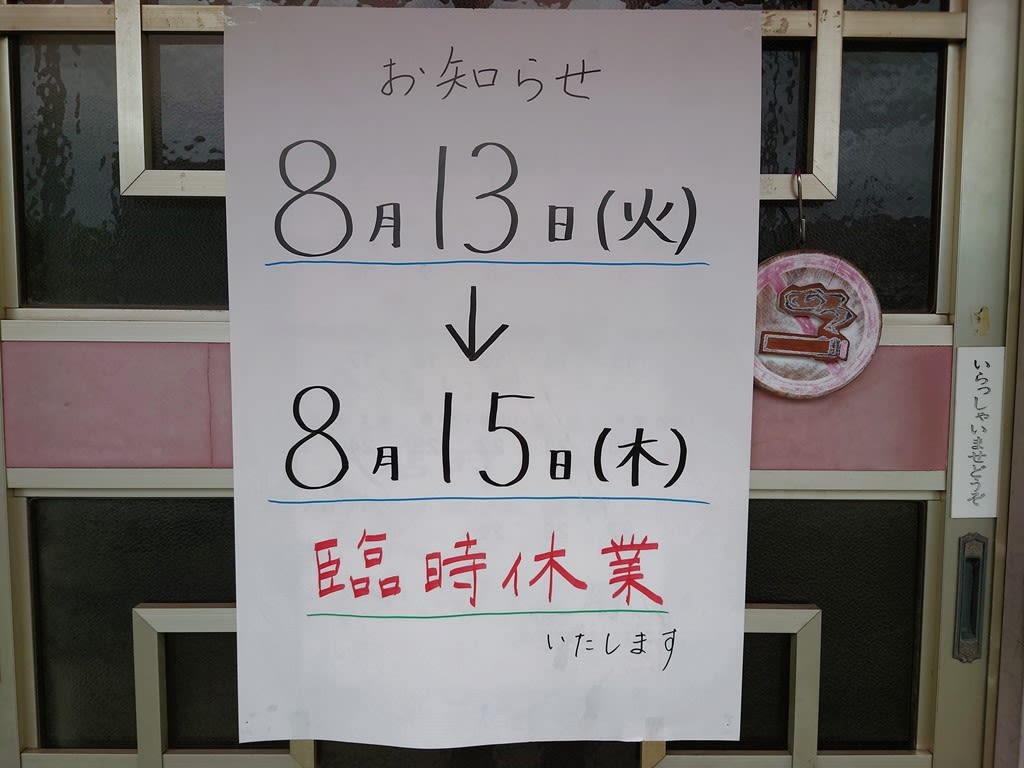 お知らせ
8月13日(火)
↓
8月15日(木)
臨時休業
いたします
いらっしゃいませどうぞ